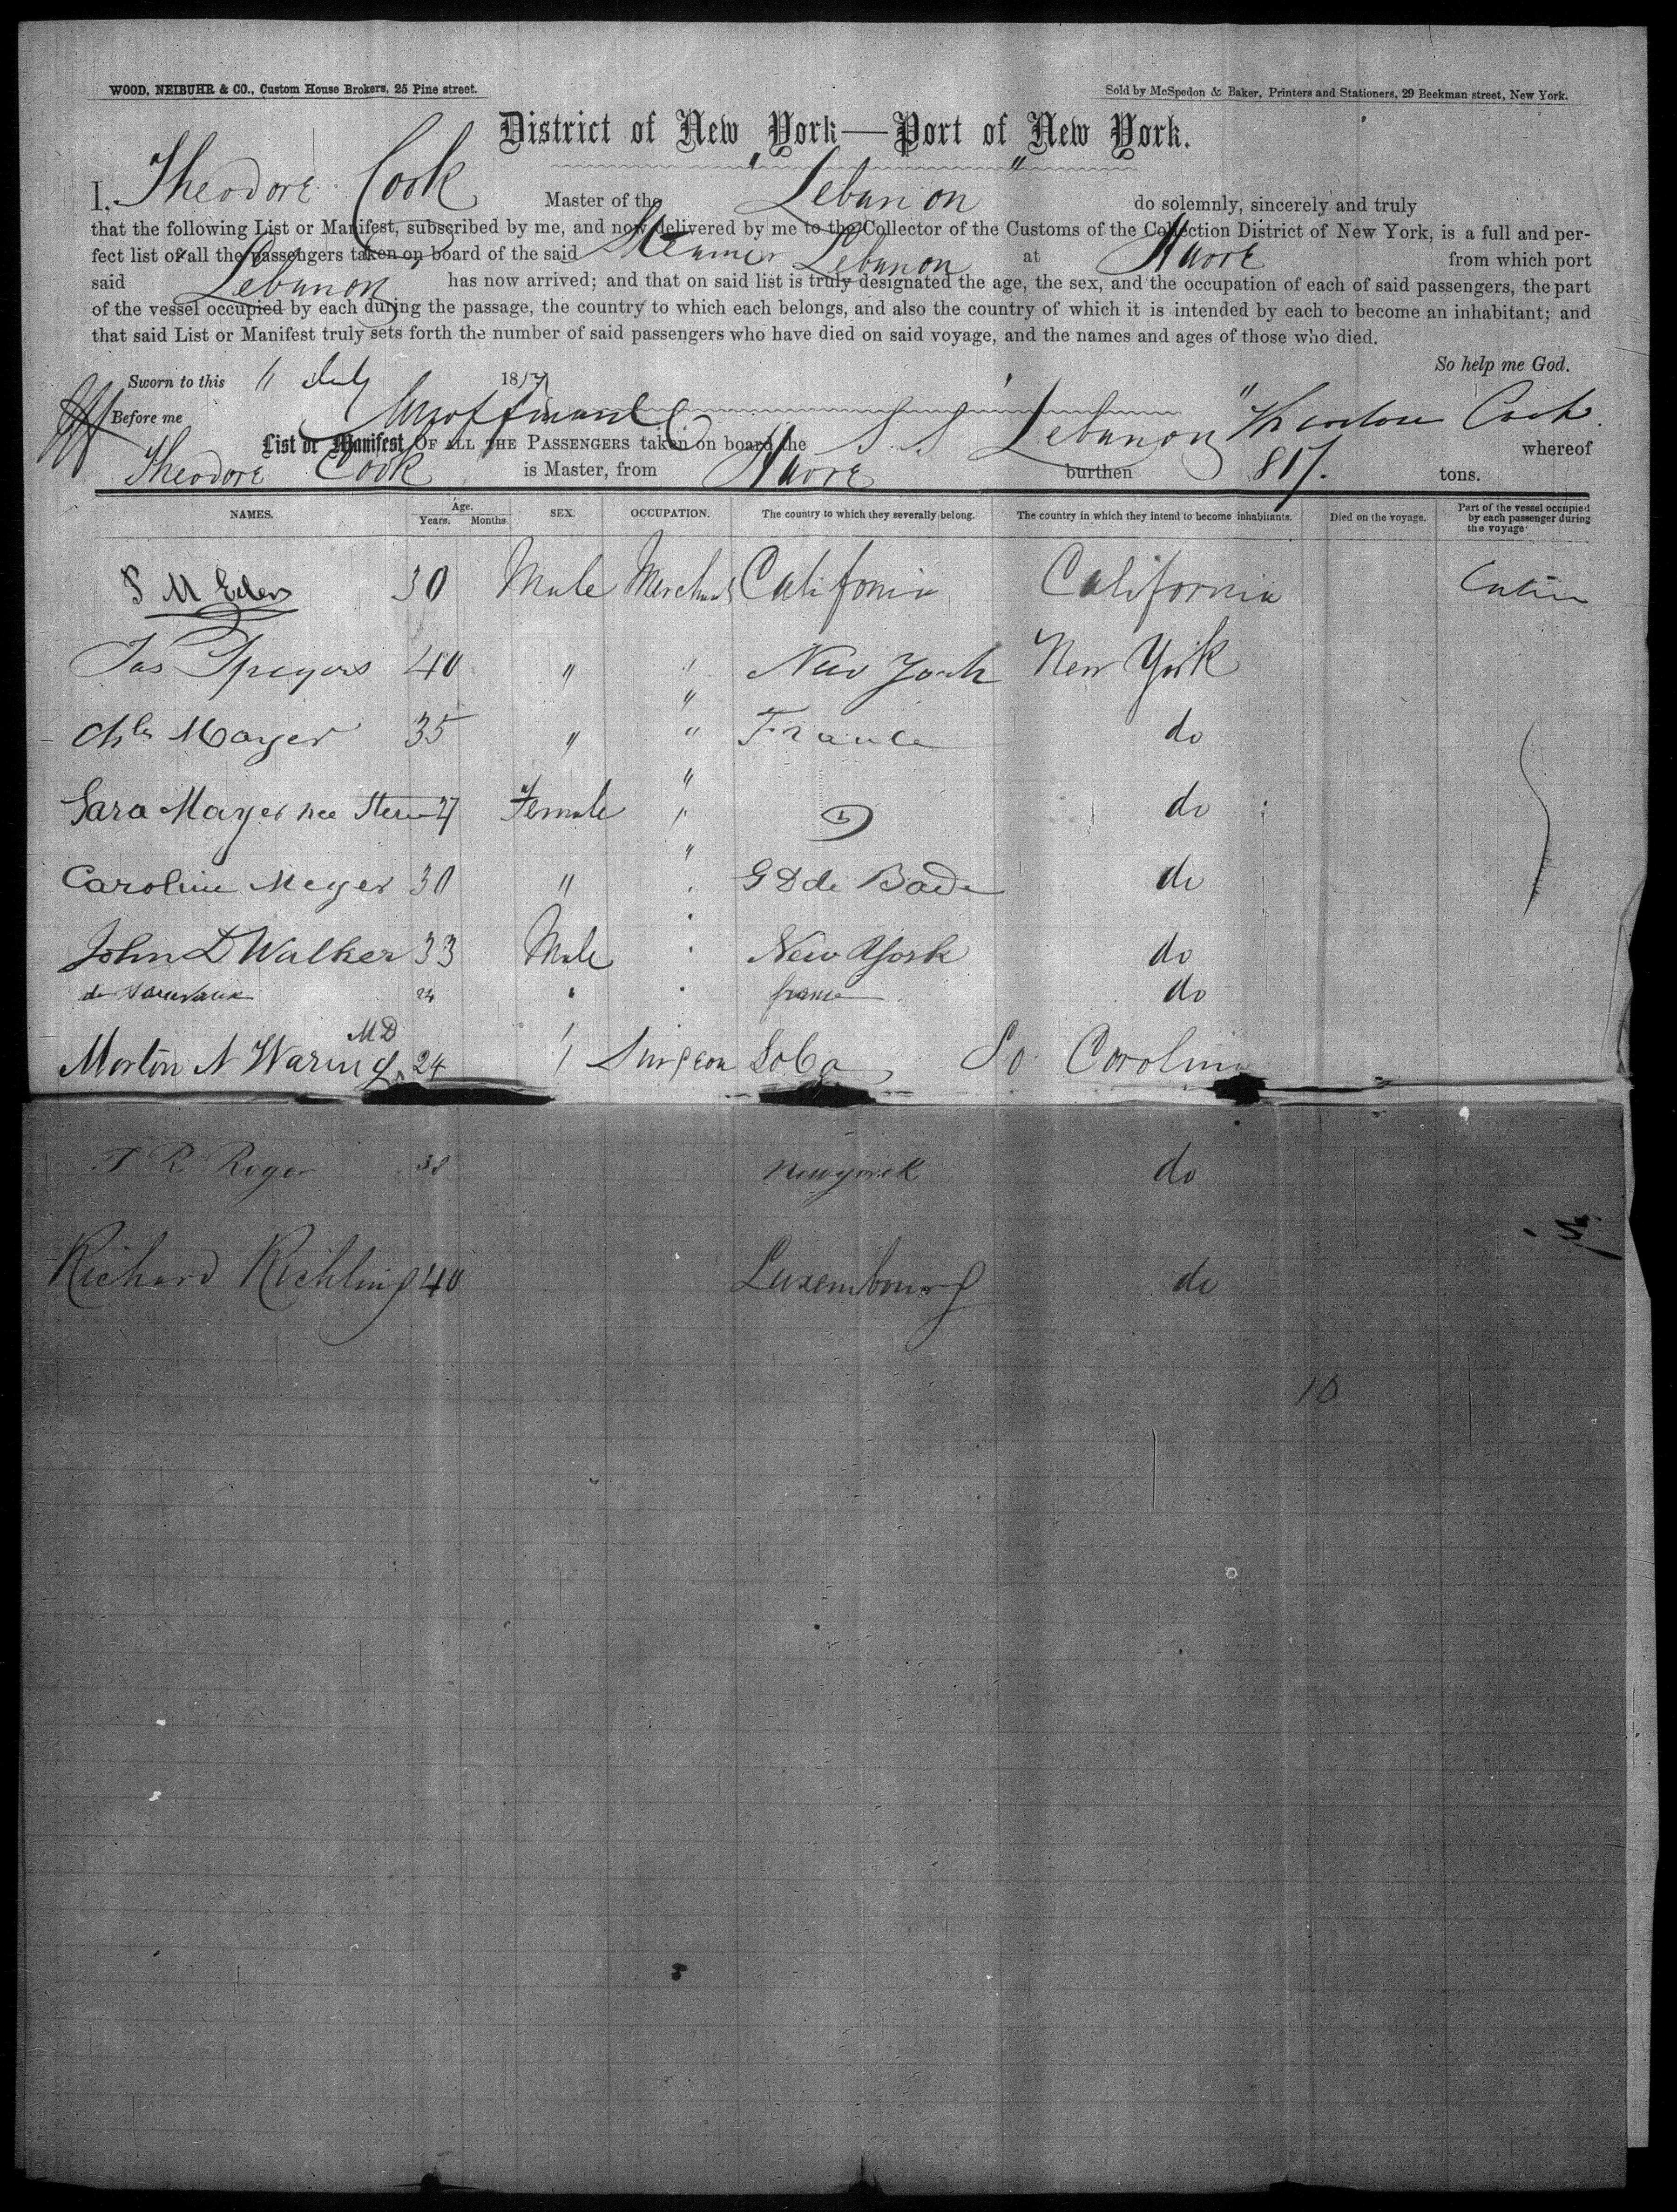 WOOD, NEIBUHR & CO., Custom House Brokers, 25 Pine street.
Sold by McSpedon & Baker, Printers and Stationers, 29 Beekman street, New York.
District of New York—Port of New York.
I, Theodore Cook Master of the "Lebanon" do solemnly, sincerely and truly
that the following List or Manifest, subscribed by me, and now delivered by me to the Collector of the Customs of the Collection District of New York, is a full and per-
fect list of all the passengers taken on board of the said Steamer Lebanon at Havre from which port
said Lebanon has now arrived; and that on said list is truly designated the age, the sex, and the occupation of each of said passengers, the part
of the vessel occupied by each during the passage, the country to which each belongs, and also the country of which it is intended by each to become an inhabitant; and
that said List or Manifest truly sets forth the number of said passengers who have died on said voyage, and the names and ages of those who died.
So help me God.
Sworn to this 11 July 185
Before me Theodore Cook
List or Manifest OF ALL THE PASSENGERS taken on board the S S Lebanon" whereof
Theodore Cook is Master, from Havre burthen 807. tons.
NAMES. Age. Years. Months. SEX. OCCUPATION. The country to which they severally belong. The country in which they intend to become inhabitants. Died on the voyage. Part of the vessel occupied by each passenger during the voyage
S M 30 Male Merchant California California Cabin
Jas Speyers 40 " " New York New York
Chls Mayer 35 " " France do
Sara Mayer nee Stern 27 Female " D do
Caroline Meyer 30 " G D de Bade do
John D Walker 33 Male New York do
de 24 " france do
Morton N Waring MD 24 " Surgeon So Ca So Carolina
T R Roger 38 New york do
Richard Richling 40 Luxembourg do
10